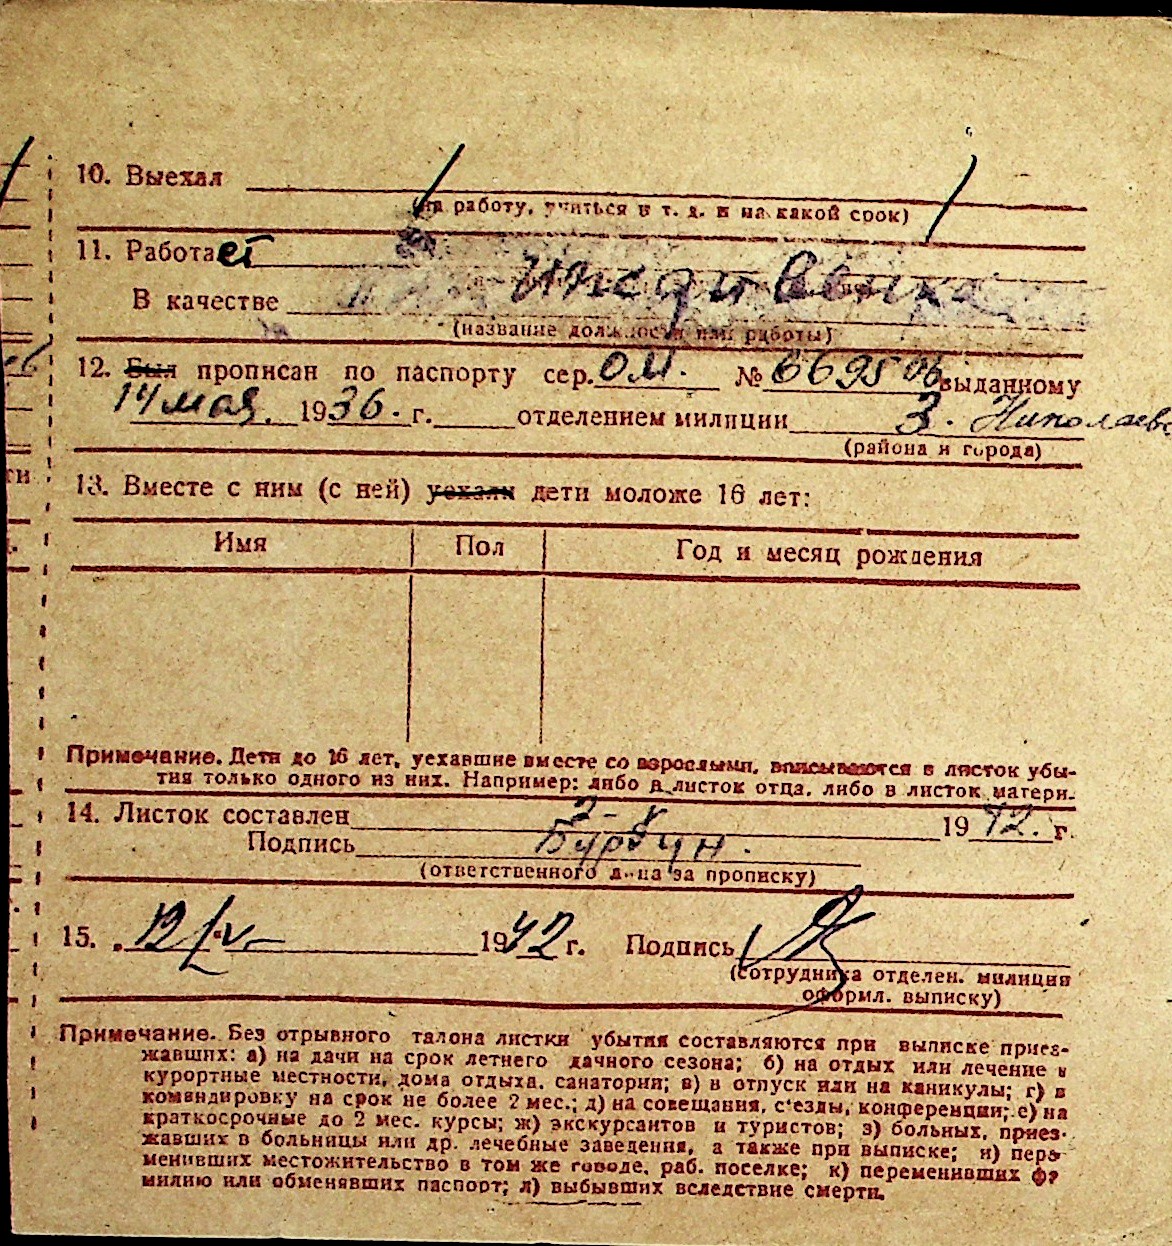 10. Выехал
(на работу, учиться и т. д. и на какой срок)
11. Работает
Иждивенка
В качестве
(название должности или работы)
12. Был прописан по паспорту сер. ОМ. № 669506 выданному
14 мая 1936. г. отделением милиции 3. Николаев
(района и города)
13. Вместе с ним (с ней) уехали дети моложе 16 лет:
Имя Пол Год и месяц рождения
Примечание. Дети до 16 лет, уехавшие вместе со взрослыми, вписываются в листок убы-
тия только одного из них. Например: либо в листок отца, либо в листок матери.
14. Листок составлен 1942. г.
Подпись
(ответственного лица за прописку)
15. 12/IV 1942 г. Подпись
(сотрудника отделен. милиции
оформл. выписку)
Примечание. Без отрывного талона листки убытия составляются при выписке приез-
жавших: а) на дачи на срок летнего дачного сезона; б) на отдых или лечение в
курортные местности, дома отдыха, санатории; в) в отпуск или на каникулы; г) в
командировку на срок не более 2 мес.; д) на совещания, с'езды, конференции; е) на
краткосрочные до 2 мес. курсы; ж) экскурсантов и туристов; з) больных, приез-
жавших в больницы или др. лечебные заведения, а также при выписке; и) пере-
менивших местожительство в том же городе, раб. поселке; к) переменивших фа-
милию или обменявших паспорт; л) выбывших вследствие смерти.